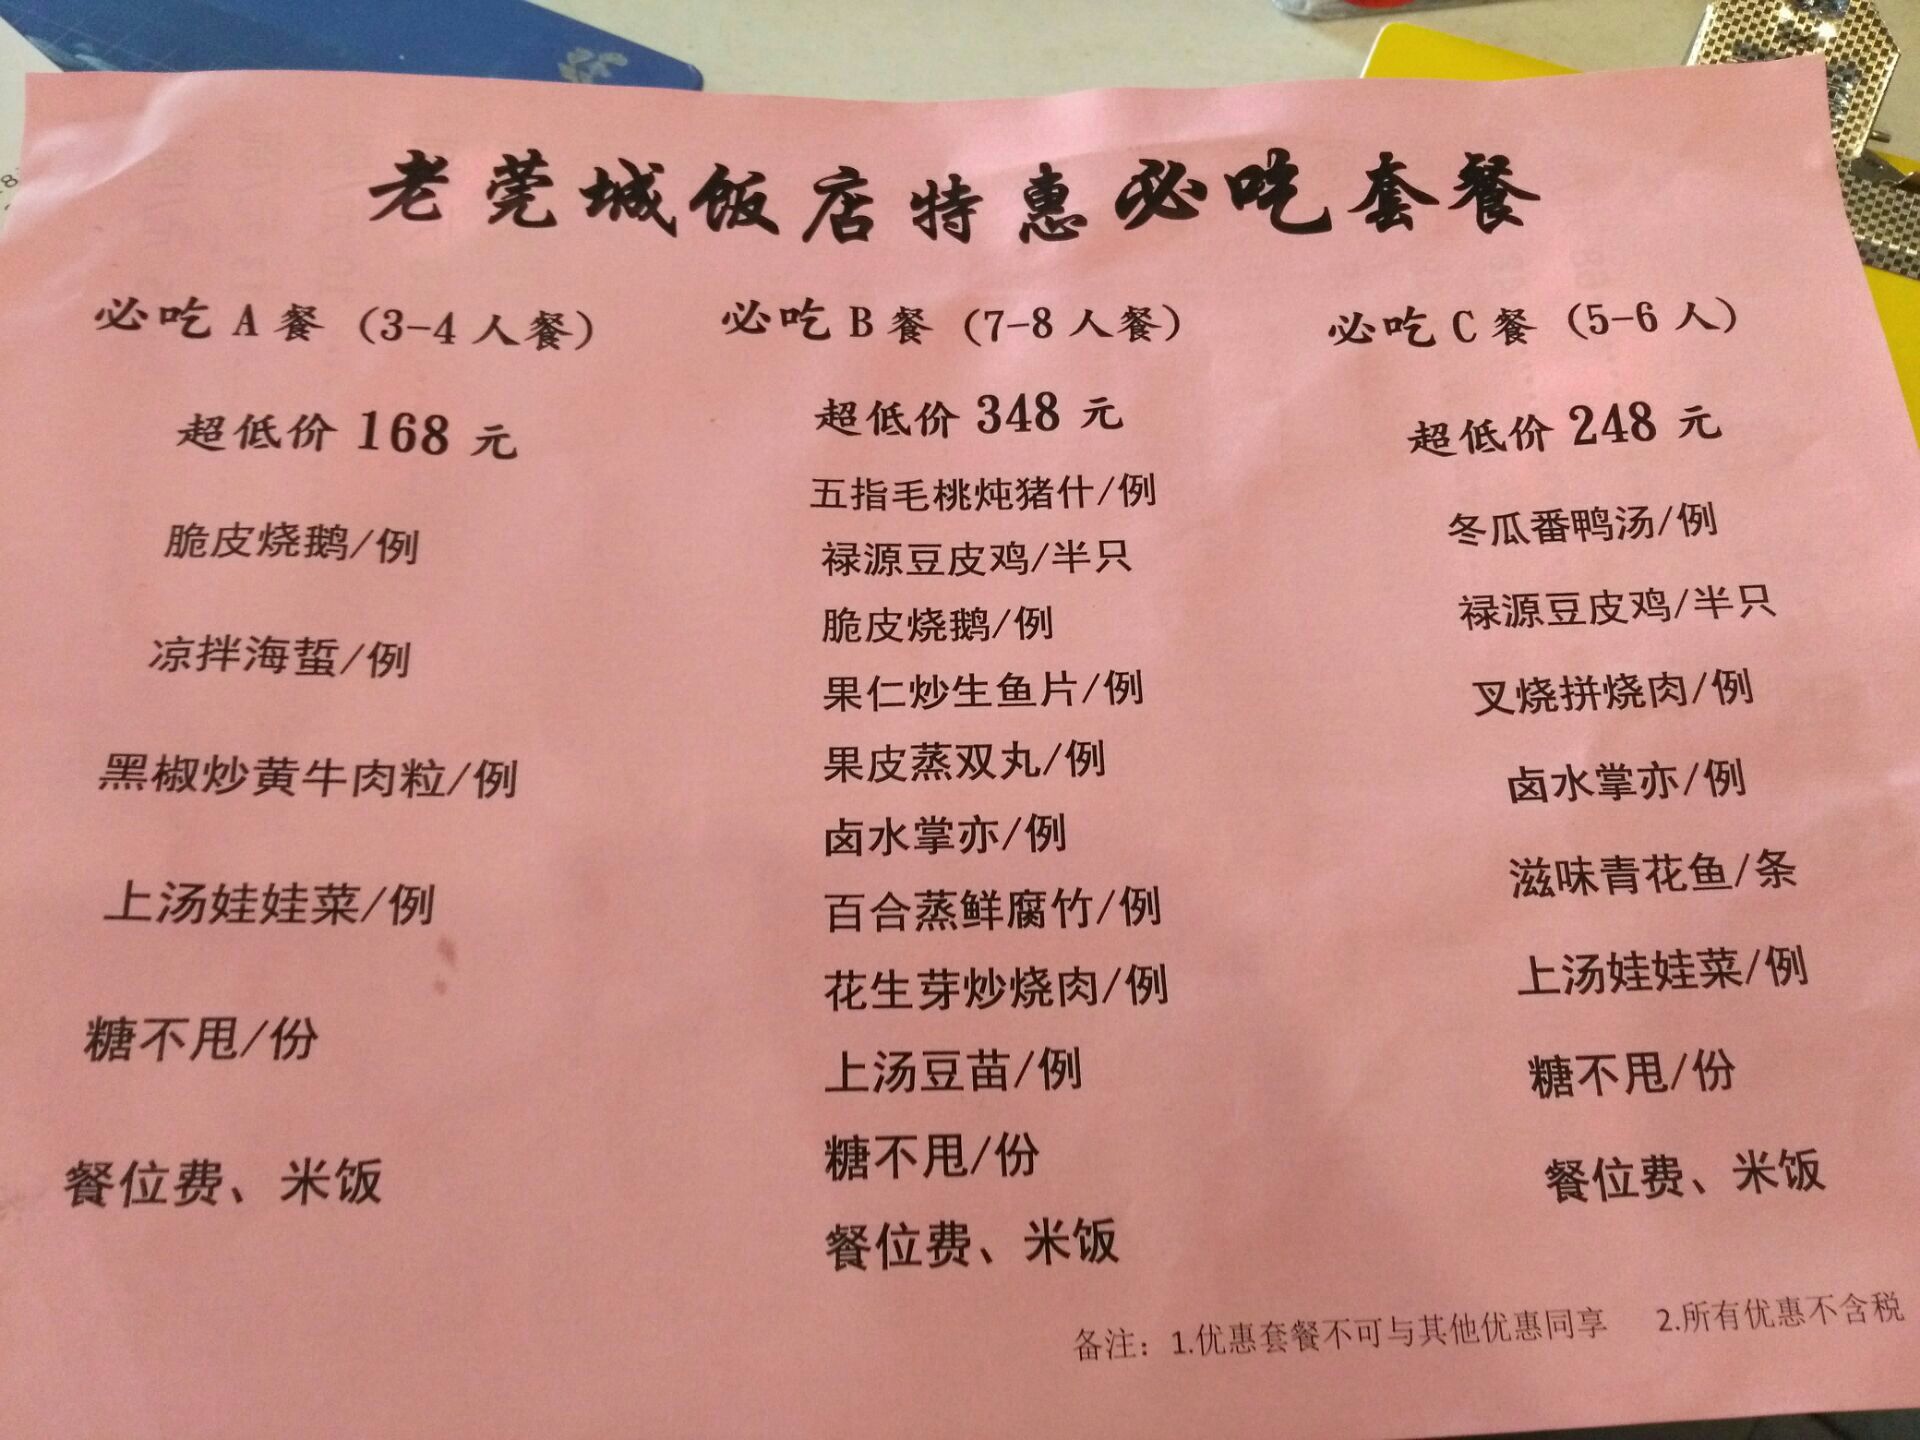 老莞城饭店特惠必吃套餐
必吃A餐（3-4人餐）
超低价168元
脆皮烧鹅/例
凉拌海蜇/例
黑椒炒黄牛肉粒/例
上汤娃娃菜/例
糖不甩/份
餐位费、米饭
必吃B餐（7-8人餐）
超低价348元
五指毛桃炖猪什/例
禄源豆皮鸡/半只
脆皮烧鹅/例
果仁炒生鱼片/例
果皮蒸双丸/例
卤水掌亦/例
百合蒸鲜腐竹/例
花生芽炒烧肉/例
上汤豆苗/例
糖不甩/份
餐位费、米饭
必吃C餐（5-6人）
超低价248元
冬瓜番鸭汤/例
禄源豆皮鸡/半只
叉烧拼烧肉/例
卤水掌亦/例
滋味青花鱼/条
上汤娃娃菜/例
糖不甩/份
餐位费、米饭
备注：1.优惠套餐不可与其他优惠同享 2.所有优惠不含税